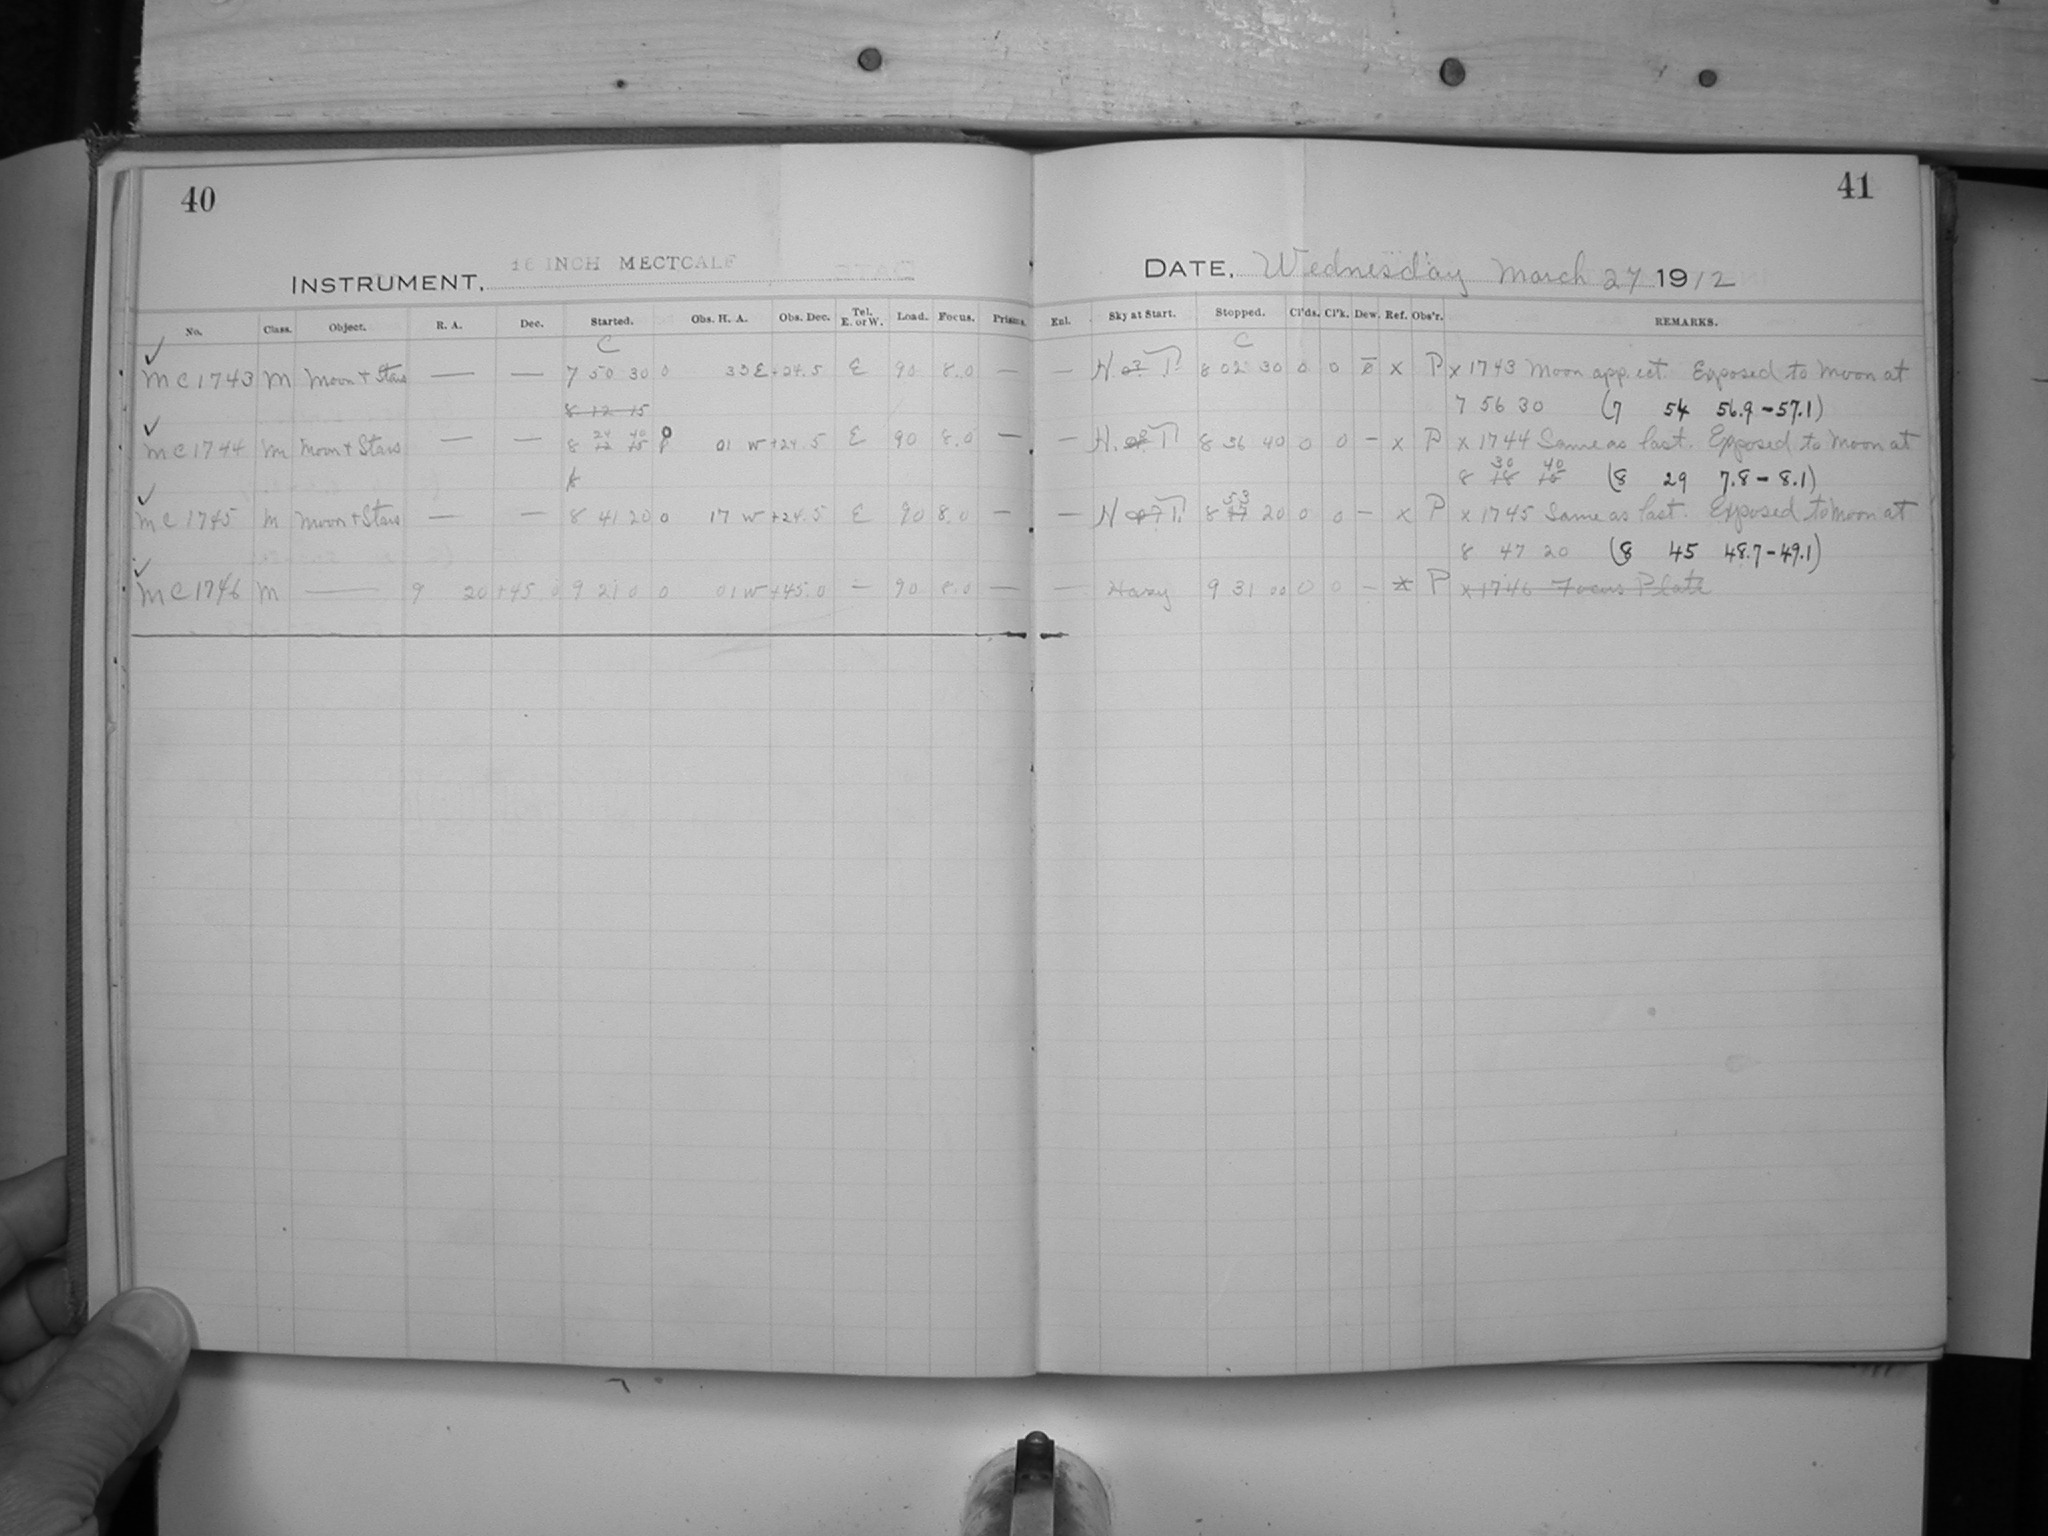 40
INSTRUMENT, 16 INCH MECTCALF
No. Class. Object. R. A. Dec. Started. Obs. H. A. Obs. Dec. Tel. E. or W. Load. Focus. Prisms.
C
MC1743 M Moon + Stars — — 7 50 30 0 33 E +24.5 E 90 8.0 —
8 12 15
MC1744 M Moon + Stars — — 8 24 40 0 01 W +24.5 E 90 8.0 —
MC1745 M Moon + Stars — — 8 41 20 0 17 W +24.5 E 90 8.0 —
MC1746 M — 9 20 +45 0 9 21 0 0 01 W +45.0 — 90 8.0 —
41
DATE, Wednesday March 27 1912
Enl. Sky at Start. Stopped. Cl'ds. Cl'k. Dew. Ref. Obs'r. REMARKS.
C
— H. 8 02 30 0 0 — x P x 1743 Moon app. ect. Exposed to Moon at
7 56 30 (7 54 56.9-57.1)
— H. 8 36 40 0 0 — x P x 1744 Same as last. Exposed to Moon at
8 30 40 (8 29 7.8-8.1)
— H 8 53 20 0 0 — x P x 1745 Same as last. Exposed to Moon at
8 47 20 (8 45 48.7-49.1)
— Hazy 9 31 00 0 0 — x P x 1746 Focus Plate